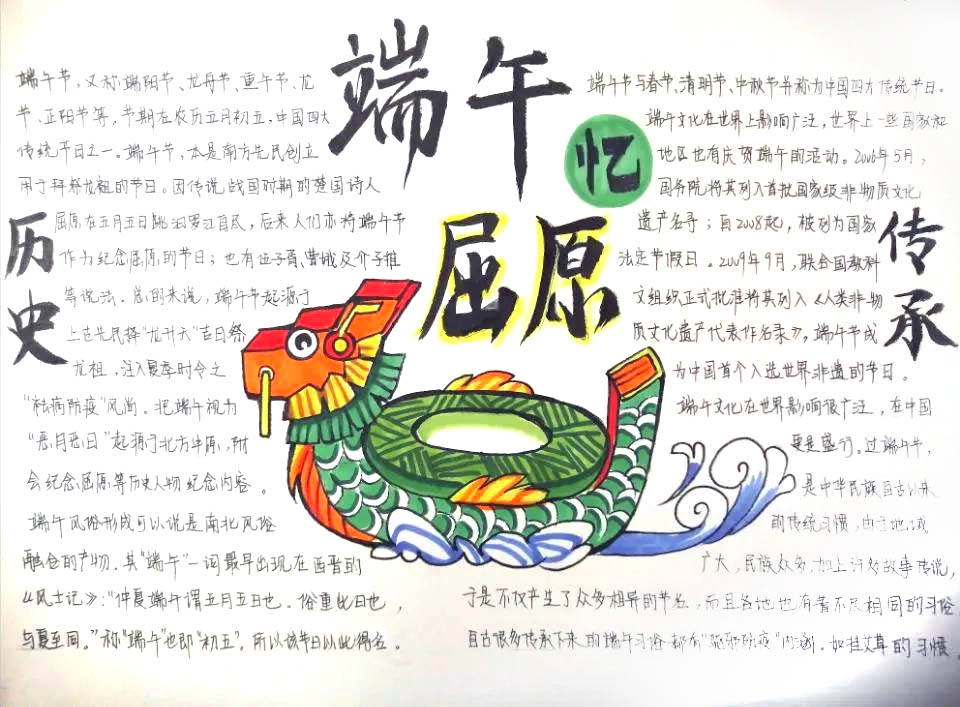 端午
忆
屈原
历史
端午节，又称端阳节、龙舟节、重午节、龙
节、正阳节等，节期在农历五月初五，中国四大
传统节日之一。端午节，本是南方先民创立
用于拜祭龙祖的节日。因传说战国时期的楚国诗人
屈原在五月五日跳汨罗江自尽，后来人们亦将端午节
作为纪念屈原的节日；也有伍子胥、曹娥及介子推
等说法。总的来说，端午节起源于
上古先民择“龙升天”吉日祭
龙祖，注入夏季时令之
“祛病防疫”风尚。把端午视为
“恶月恶日”起源于北方中原，附
会纪念屈原等历史人物纪念内容。
端午风俗形成可以说是南北风俗
融合的产物。其“端午”一词最早出现在西晋的
《风土记》：“仲夏端午谓五月五日也，俗重此日也，
与夏至同。”称“端午”也即“初五”，所以该节日以此得名。
传承
端午节与春节、清明节、中秋节并称为中国四大传统节日。
端午文化在世界上影响广泛，世界上一些国家和
地区也有庆贺端午的活动。2006年5月，
国务院将其列入首批国家级非物质文化
遗产名录；自2008起，被列为国家
法定节假日。2009年9月，联合国教科
文组织正式批准将其列入《人类非物
质文化遗产代表作名录》，端午节成
为中国首个入选世界非遗的节日。
端午文化在世界影响很广泛，在中国
更是盛行。过端午节，
是中华民族自古以来
的传统习惯，由于地域
广大，民族众多，加上许多故事传说，
于是不仅产生了众多相异的节名，而且各地也有着不尽相同的习俗
自古很多传承下来的端午习俗都有“驱邪防疫”内涵，如挂艾草的习惯。